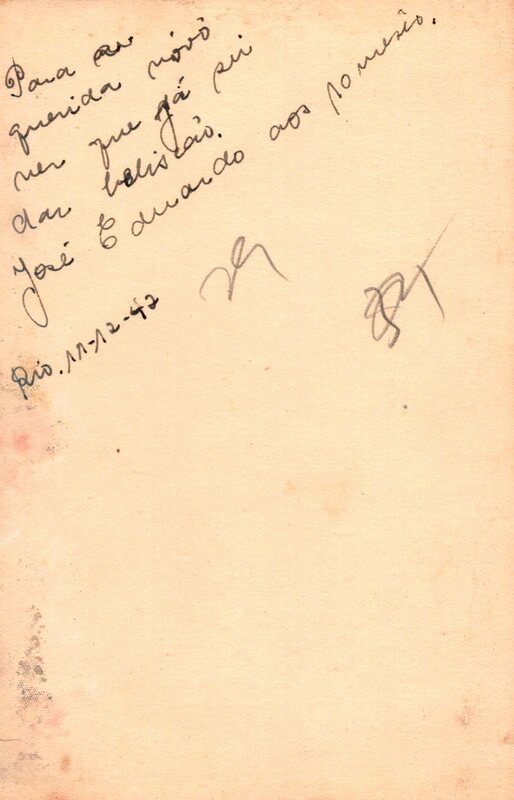 Para a
querida vóvó
ver que já sei
dar beliscão.
José Eduardo aos 10 meses.
Rio. 11-12-42